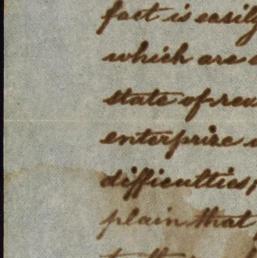 fact is easily
which are
state of
enterprize
difficulties,
plain that